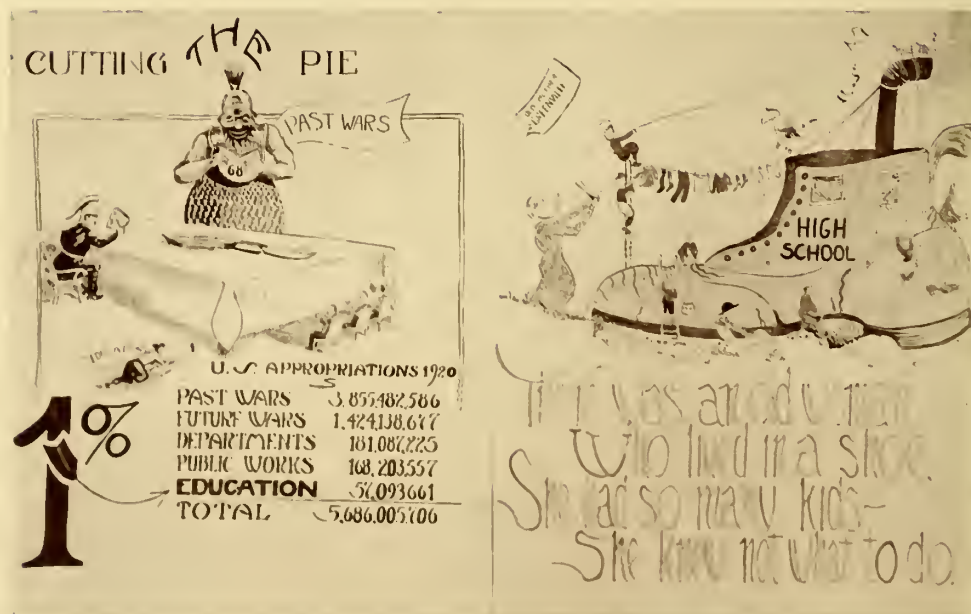 CUTTING THE PIE
PAST WARS
68
U.S. APPROPRIATIONS 1920
PAST WARS 3,855,482,586
FUTURE WARS 1,424,138,677
DEPARTMENTS 181,087,225
PUBLIC WORKS 168,203,557
EDUCATION 57,093661
TOTAL 5,686,005,706
1%
HIGH
SCHOOL
There was an old woman
Who lived in a shoe.
She had so many kids-
She knew not what to do.